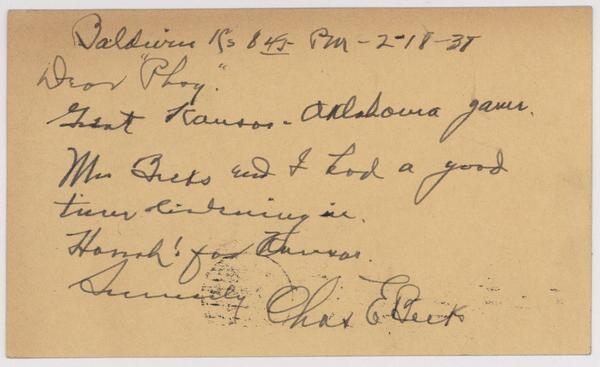 Baldwin Ks 8 45 PM - 2-18-38
Dear "Phog."
Great Kansas - Oklahoma game.
Mrs Beeks and I had a good
time listening in.
Hurrah! for Kansas.
Sincerely Chas E Beeks